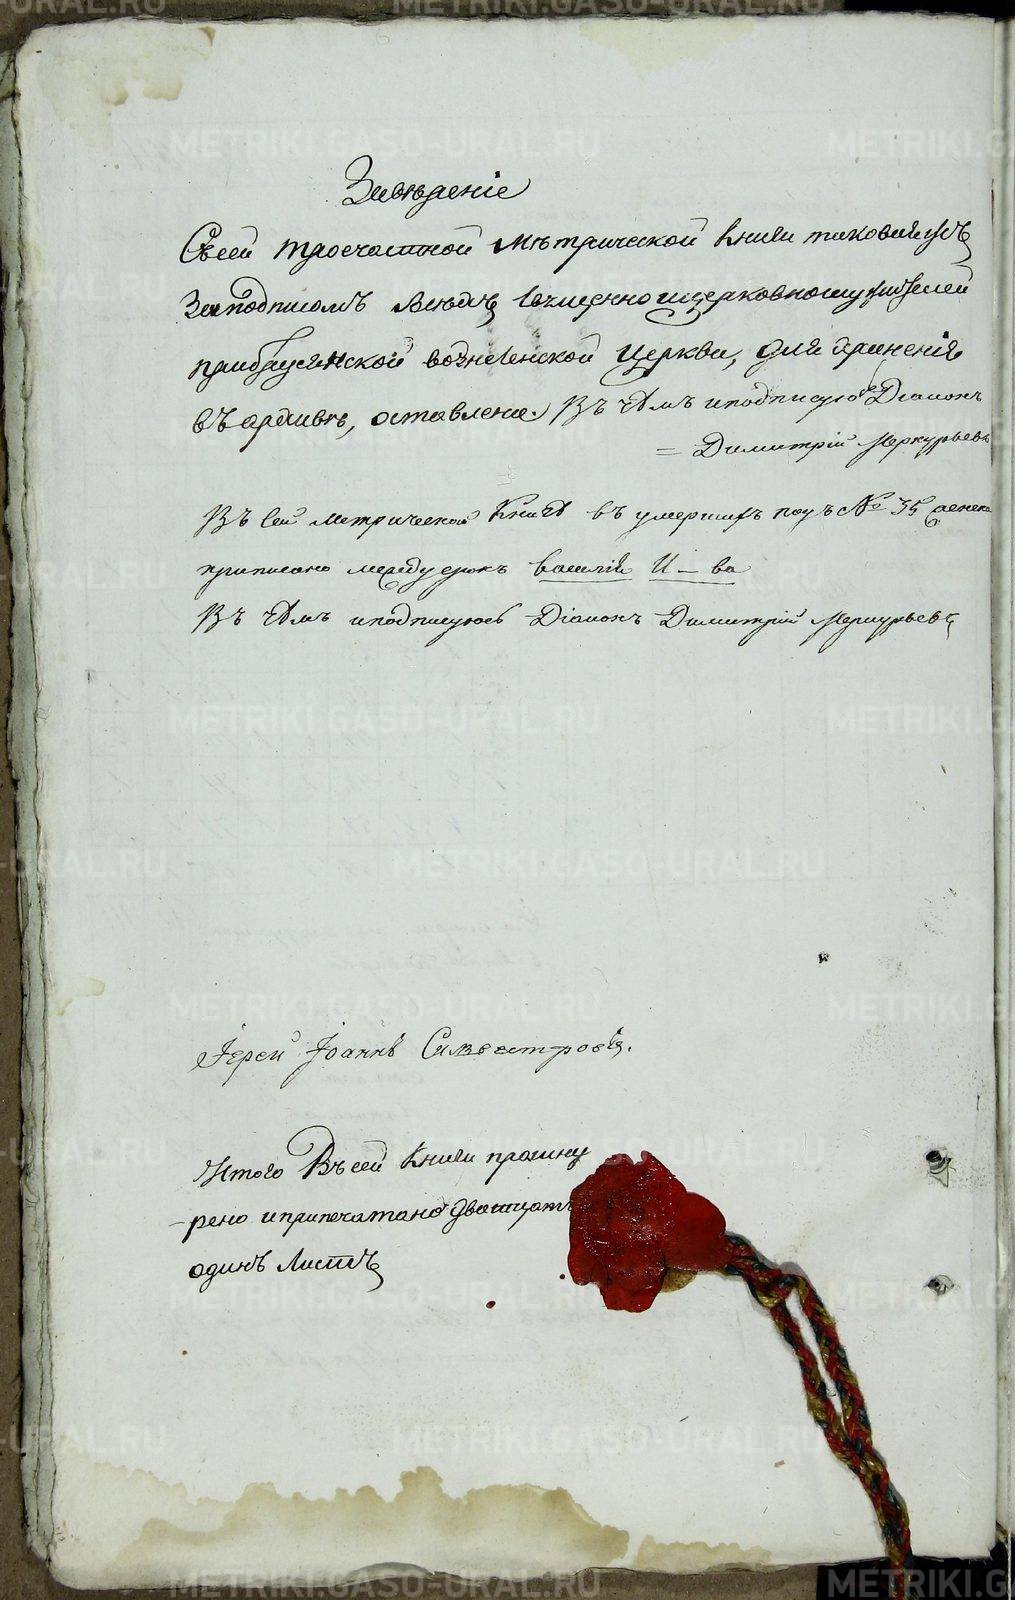 Заведеніе
Съсей троечастной Мѣтрической Книги таковаяжъ
Заподписомъ всѣхъ священноицерковнослужителей
вознесенской Церкви, для храненія
въ архивѣ, оставлена. Въ чѣмъ иподписуюсь Діаконъ
= Димитрій Меркурьевъ
Въ сей метрической Книгѣ въ умершихъ подъ № 35
приписано между срокъ василій И – ва
Въ чѣмъ иподписуюсь Діаконъ Димитрій Меркурьевъ
Іерей Іоаннъ Силвестровъ.
Итого Въсей Книги прошну
рено иприпечатано Дватцать
одинъ Листъ
METRIKI.GASO-URAL.RU